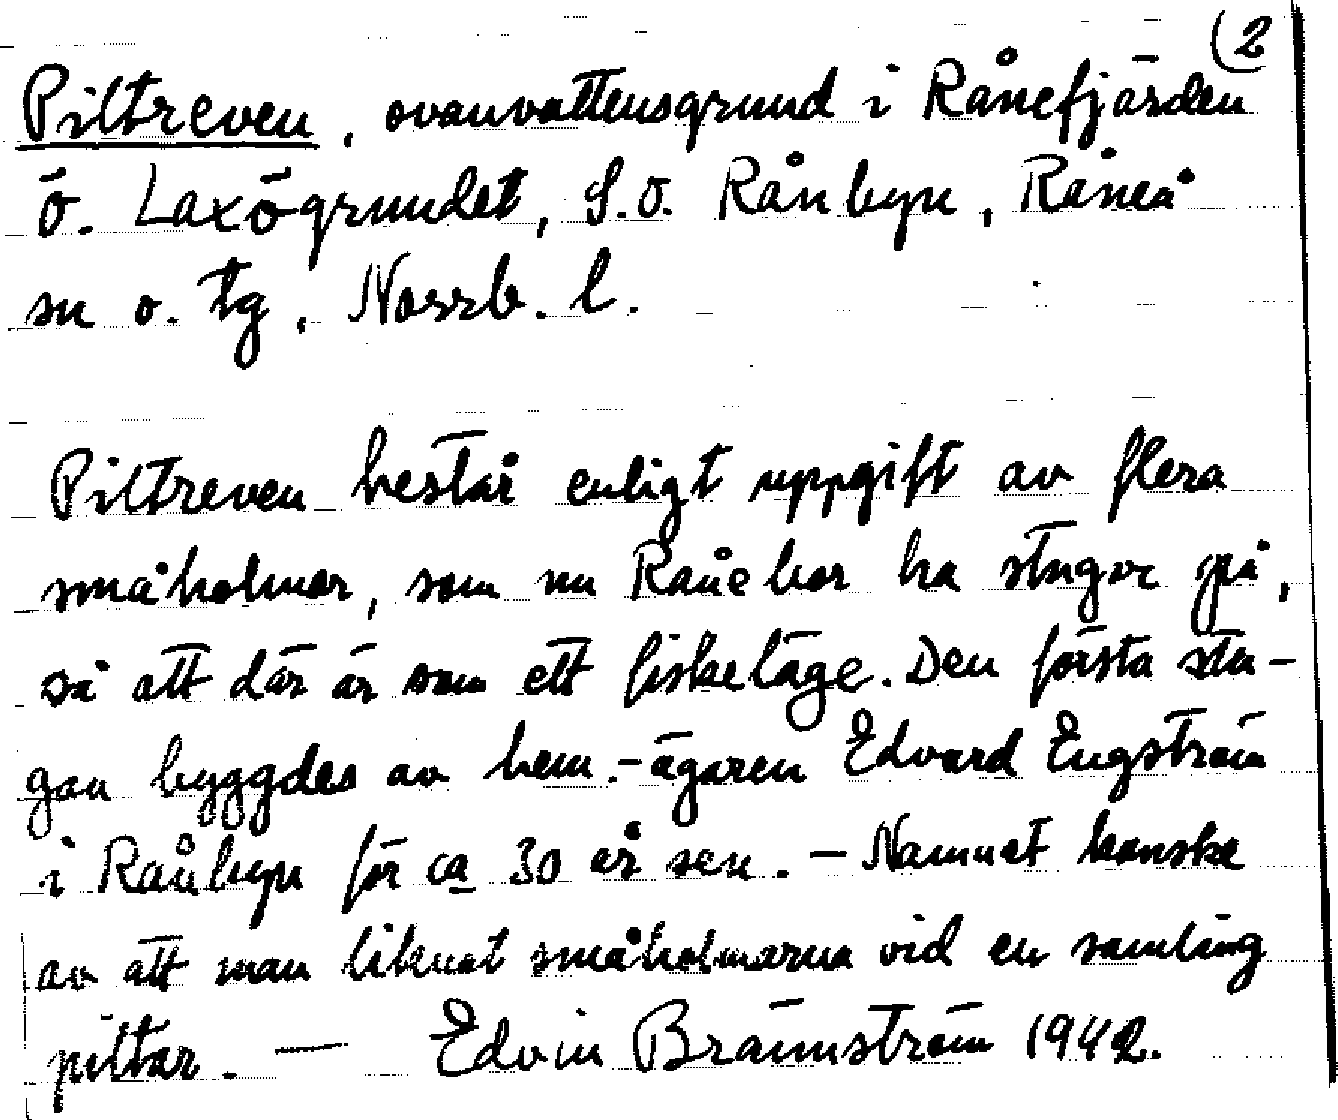 (2
Piltreven, ovanvattensgrund i Rånefjärden
ö. Laxögrundet, S.O. Rånbyn, Råneå
sn o. tg, Norrb. l.
Piltreven består enligt uppgift av flera
småholmar, som nu Rånebor ha stugor på,
så att där är som ett fiskeläge. Den första stu-
gan byggdes av hem.-ägaren Edvard Engström
i Rånbyn för ca 30 år sen. - Namnet kanske
av att man liknat småholmarna vid en samling
piltar. — Edvin Brännström 1942.